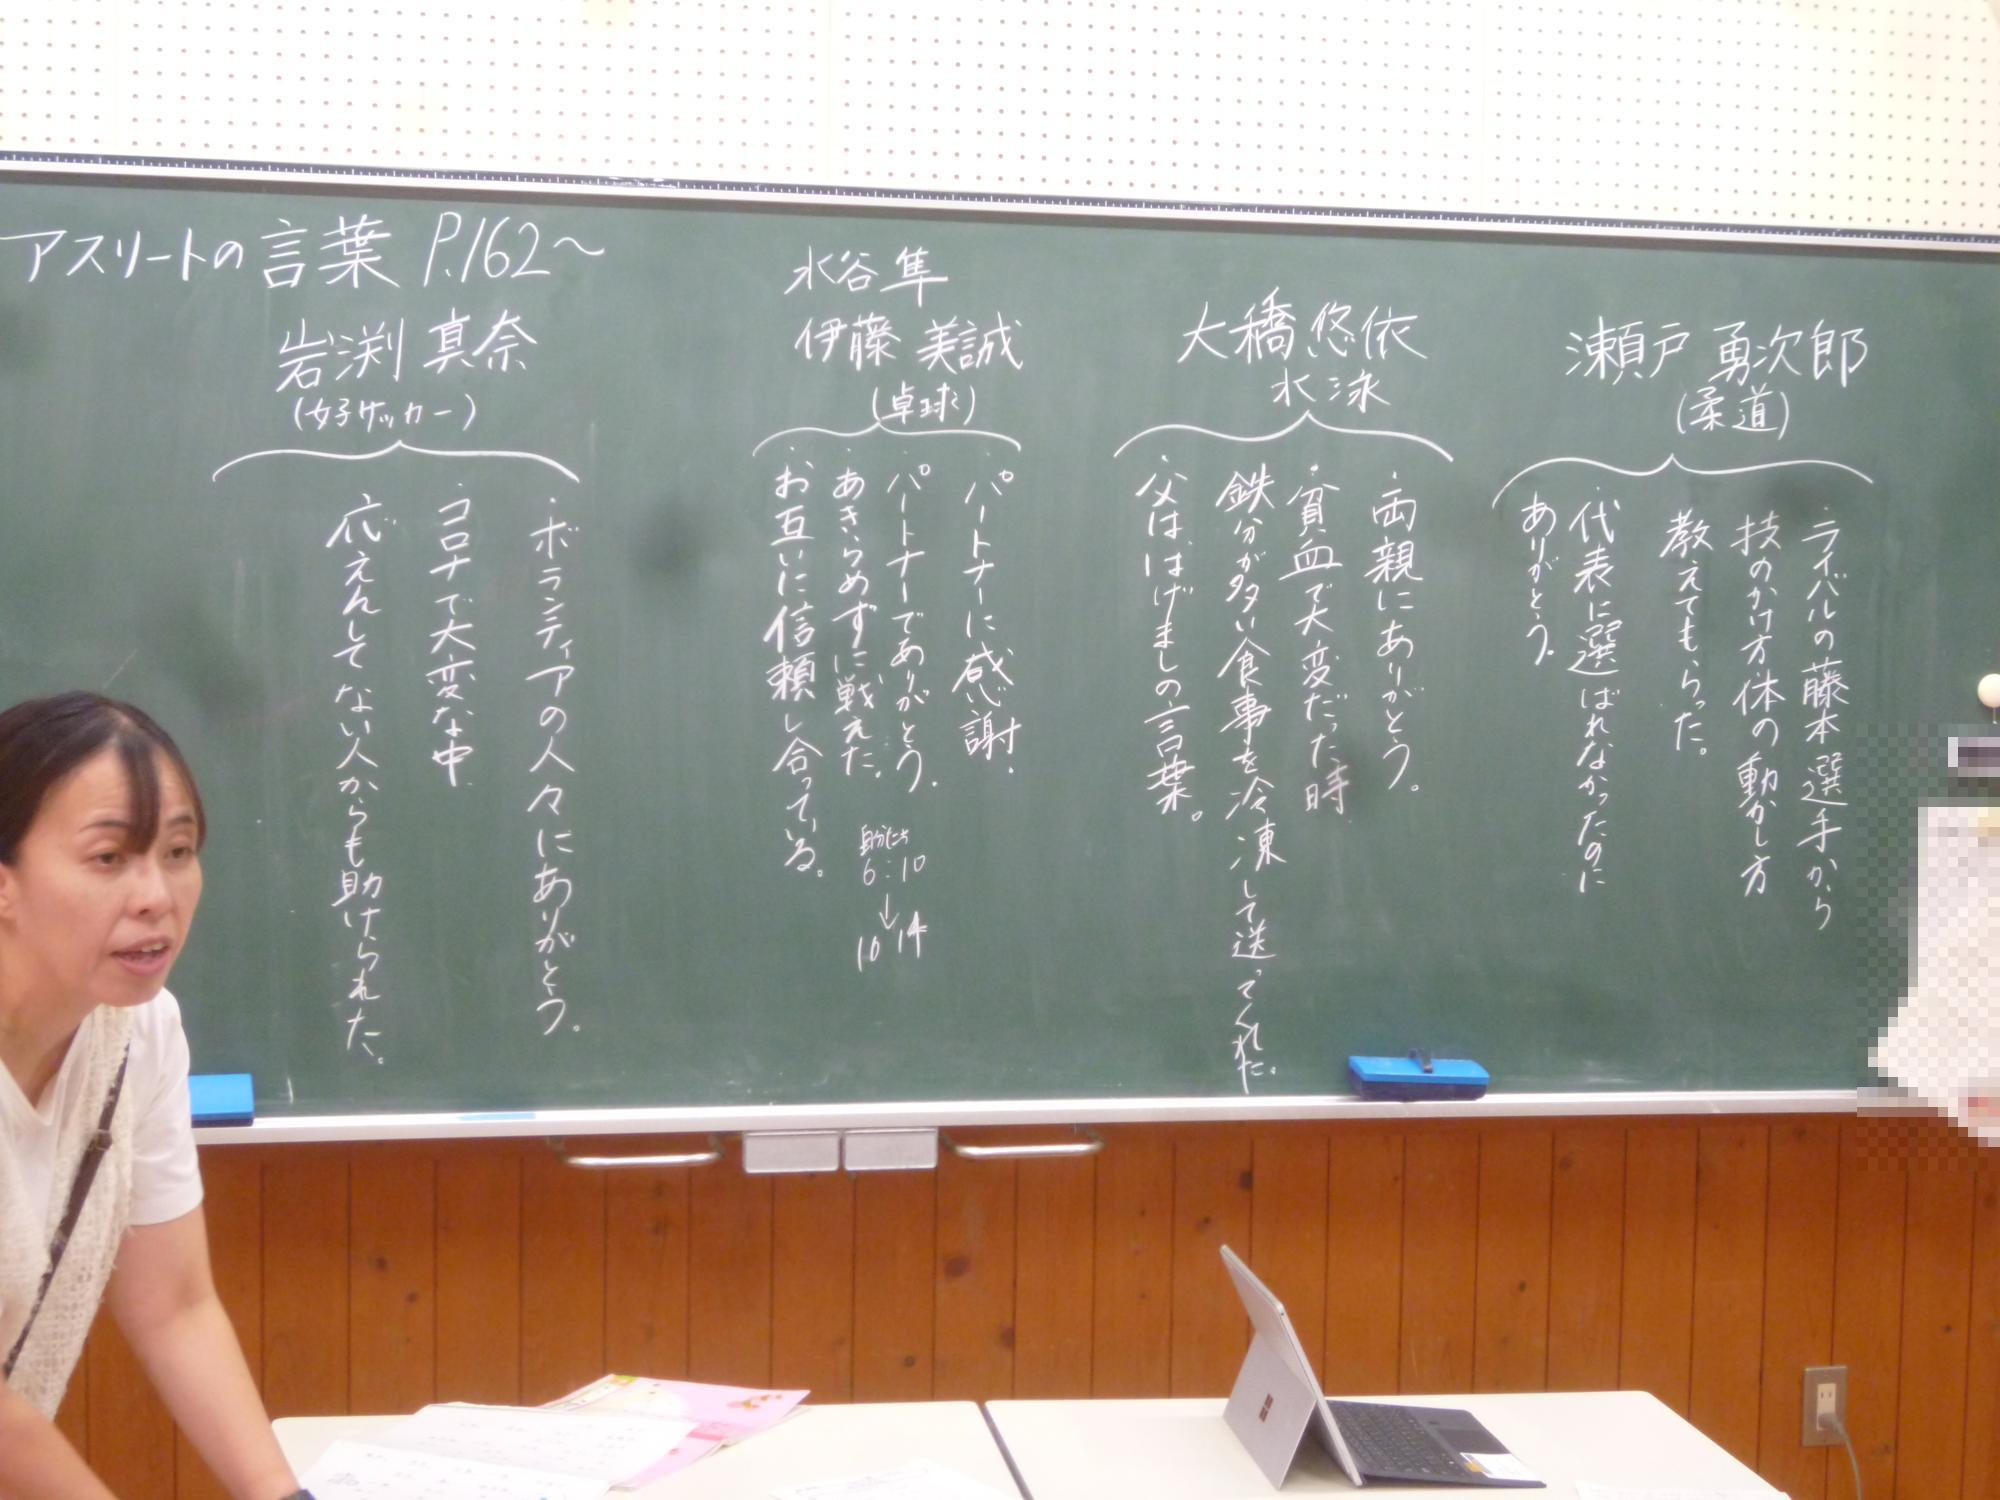 アスリートの言葉 P.162〜
岩渕 真奈
(女子サッカー)
・ボランティアの人々にありがとう。
・コロナで大変な中
応えんしてない人からも助けられた。
水谷 隼
伊藤 美誠
(卓球)
・パートナーに感謝.
・パートナーでありがとう.
・あきらめずに戦えた。
・お互いに信頼し合っている。
自分たち
6:10
↓
16 14
大橋 悠依
水泳
・両親にありがとう。
・貧血で大変だった時
鉄分が多い食事を冷凍して送ってくれた。
・父は、はげましの言葉。
瀬戸 勇次郎
(柔道)
・ライバルの藤本選手から
技のかけ方、体の動かし方
教えてもらった。
・代表に選ばれなかったのに
ありがとう。